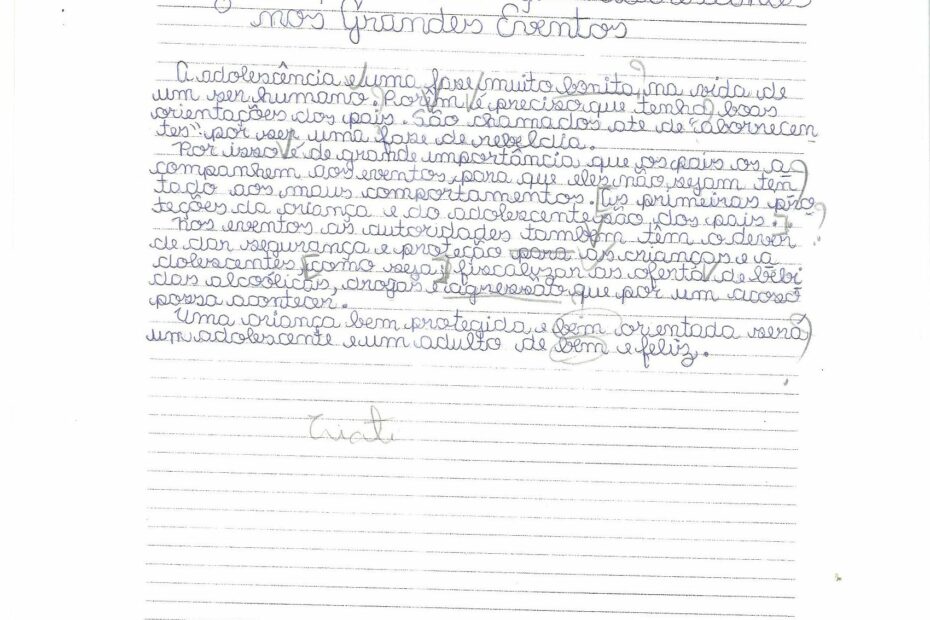 nos Grandes Eventos
A adolescência e uma fase muito bonita, na vida de
um ser humano. Porém é preciso que tenha boas
orientações dos pais. São chamados ate de "aborrecen
tes" por ser uma fase de rebeldia.
Por isso é de grande importância que os pais os a
companhem aos eventos, para que eles não sejam ten
tado aos maus comportamentos. [As primeiras pro
teções da criança e do adolescente são dos pais.]
Nos eventos as autoridades também têm o dever
de dar segurança e proteção para as crianças e a
dolescentes, [como seja] fiscalizar as oferta de bebi
das alcoólicas, drogas e agressão que por um acaso
possa acontecer.
Uma criança bem protegida e bem orientada será
um adolescente e um adulto de bem e feliz.